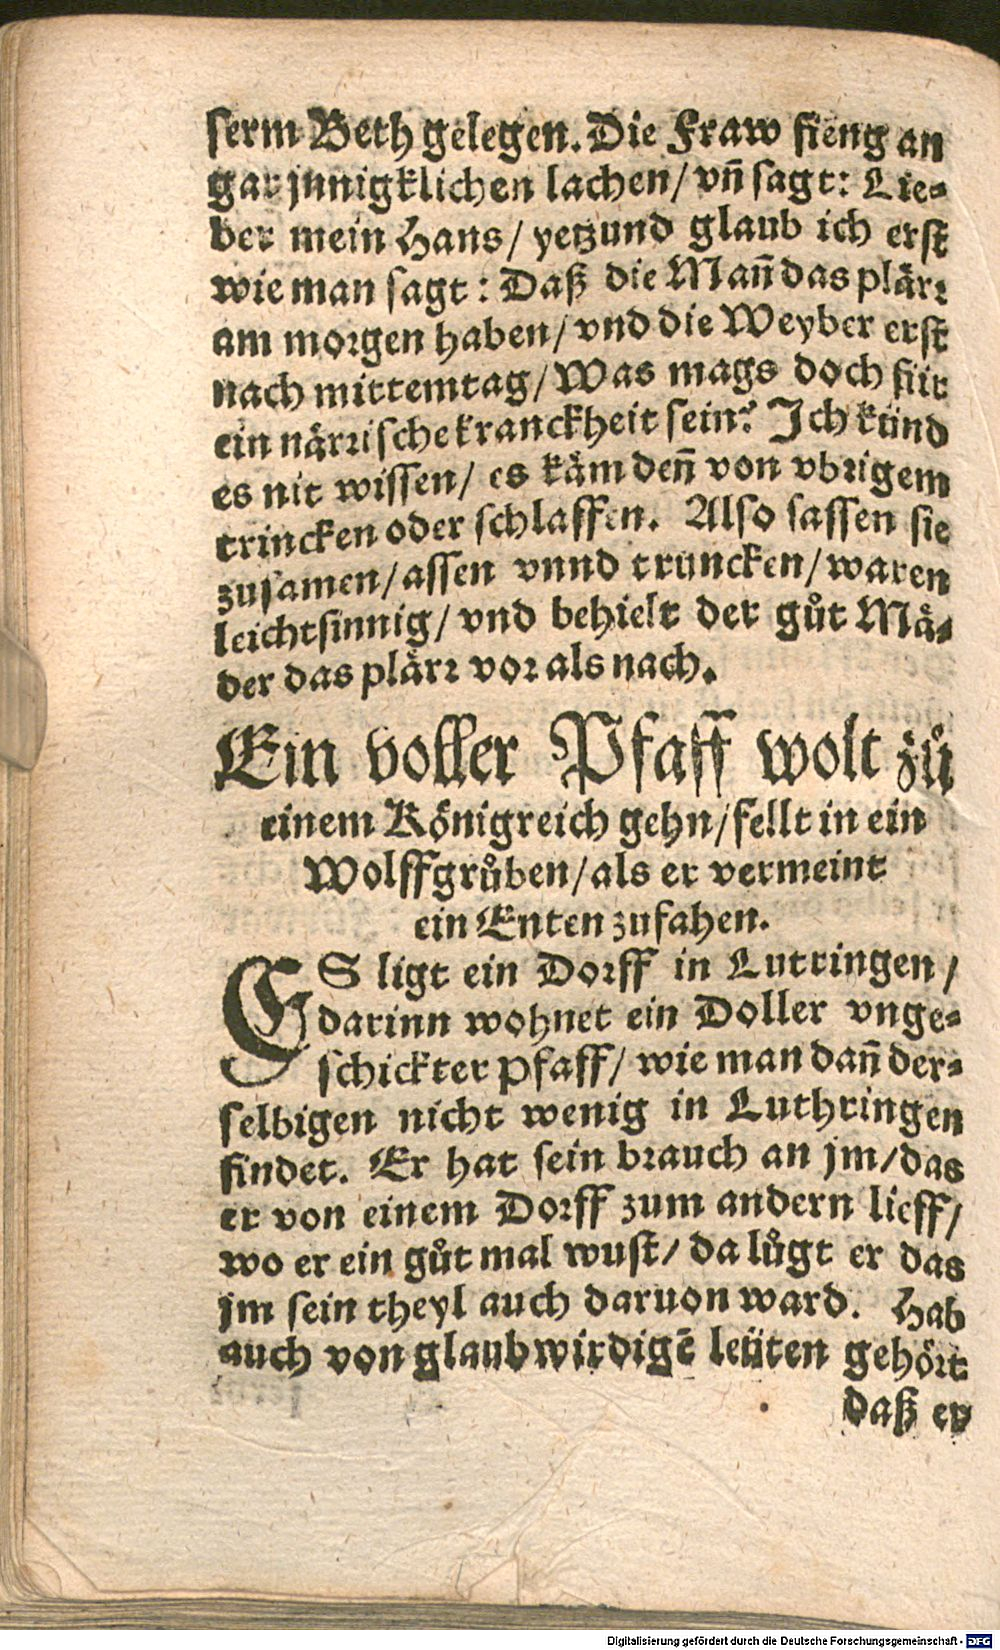 ſerm Beth gelegen. Die Fraw fieng an
gar jnnigklichen lachen / vñ ſagt: Lie⸗
ber mein Hans / yetzund glaub ich erſt
wie man ſagt: Daß die Mañ das plärꝛ
am moꝛgen haben / vnd die Weyber erſt
nach mittemtag / Was mags doch für
ein närꝛiſche kranckheit ſein? Ich künd
es nit wiſſen / es käm deñ von vbꝛigem
trincken oder ſchlaffen. Alſo ſaſſen ſie
zuſamen / aſſen vnnd truncken / waren
leichtſinnig / vnd behielt der gůt Mä⸗
der das plärꝛ voꝛ als nach.
Ein voller Pfaff wolt zů
einem Königreich gehn / fellt in ein
Wolffgrůben / als er vermeint
ein Enten zufahen.
ES ligt ein Doꝛff in Lutringen /
darinn wohnet ein Doller vnge⸗
ſchickter pfaff / wie man dañ der⸗
ſelbigen nicht wenig in Luthringen
findet. Er hat ſein bꝛauch an jm / das
er von einem Doꝛff zum andern lieff /
wo er ein gůt mal wuſt / da lůgt er das
jm ſein theyl auch daruon ward. Hab
auch von glaubwirdigẽ leüten gehöꝛt
daß er
Digitalisierung gefördert durch die Deutsche Forschungsgemeinschaft - DFG